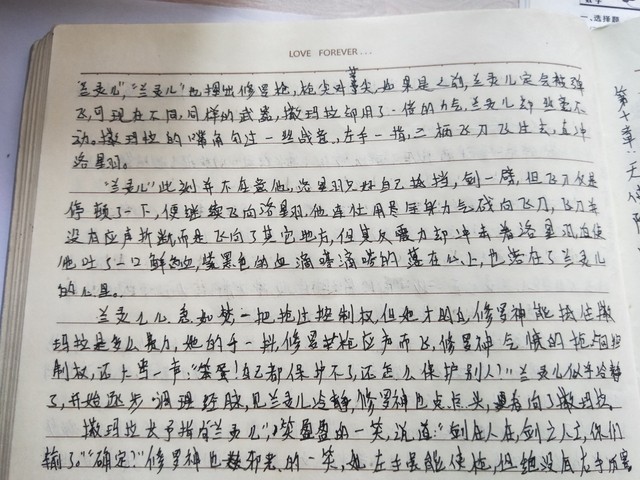 LOVE FOREVER...
一.选择题
第十章:天使降
兰灵儿","兰灵儿"也摆出修罗枪,枪尖对着尖,如果是之前,兰灵儿定会被弹
飞,可现在不同,同样的武器,撒玛拉却用了一倍的力气,兰灵儿却丝毫不
动。撒玛拉的嘴角勾过一丝战意,左手一指,三柄飞刀飞出去,直冲
洛星羽。
"兰灵儿"此刻并不在意他,洛星羽只好自己抵挡,剑一劈,但飞刀仅是
停顿了一下,便继续飞向洛星羽,他连忙用尽全身力气砍向飞刀,飞刀并
没有应声折断而是飞向了其它地方,但其反震力却冲击着洛星羽,迫使
他吐了一口鲜血,紫黑色的血滴嗒滴嗒的落在地上,也落在了兰灵儿
的心里。
兰灵儿心急如焚一把抢过控制权,但她才的,修罗神能挡住撒
玛拉是多么费力,她的手一抖,修罗枪应声而飞,修罗神气愤的抢占回控
制权,还大骂一声:"笨蛋!自己都保护不了,还怎么保护别人!"兰灵儿似乎冷静
了,开始逐步调理经脉,见兰灵儿冷静,修罗神也点点头,看向了撒玛拉。
撒玛拉长矛指向"兰灵儿",笑盈盈的一笑,说道:"剑在人在,剑亡人亡,你们
输了。""确定?"修罗神也邪恶的一笑,她左手虽能使枪,但绝没有右手厉害